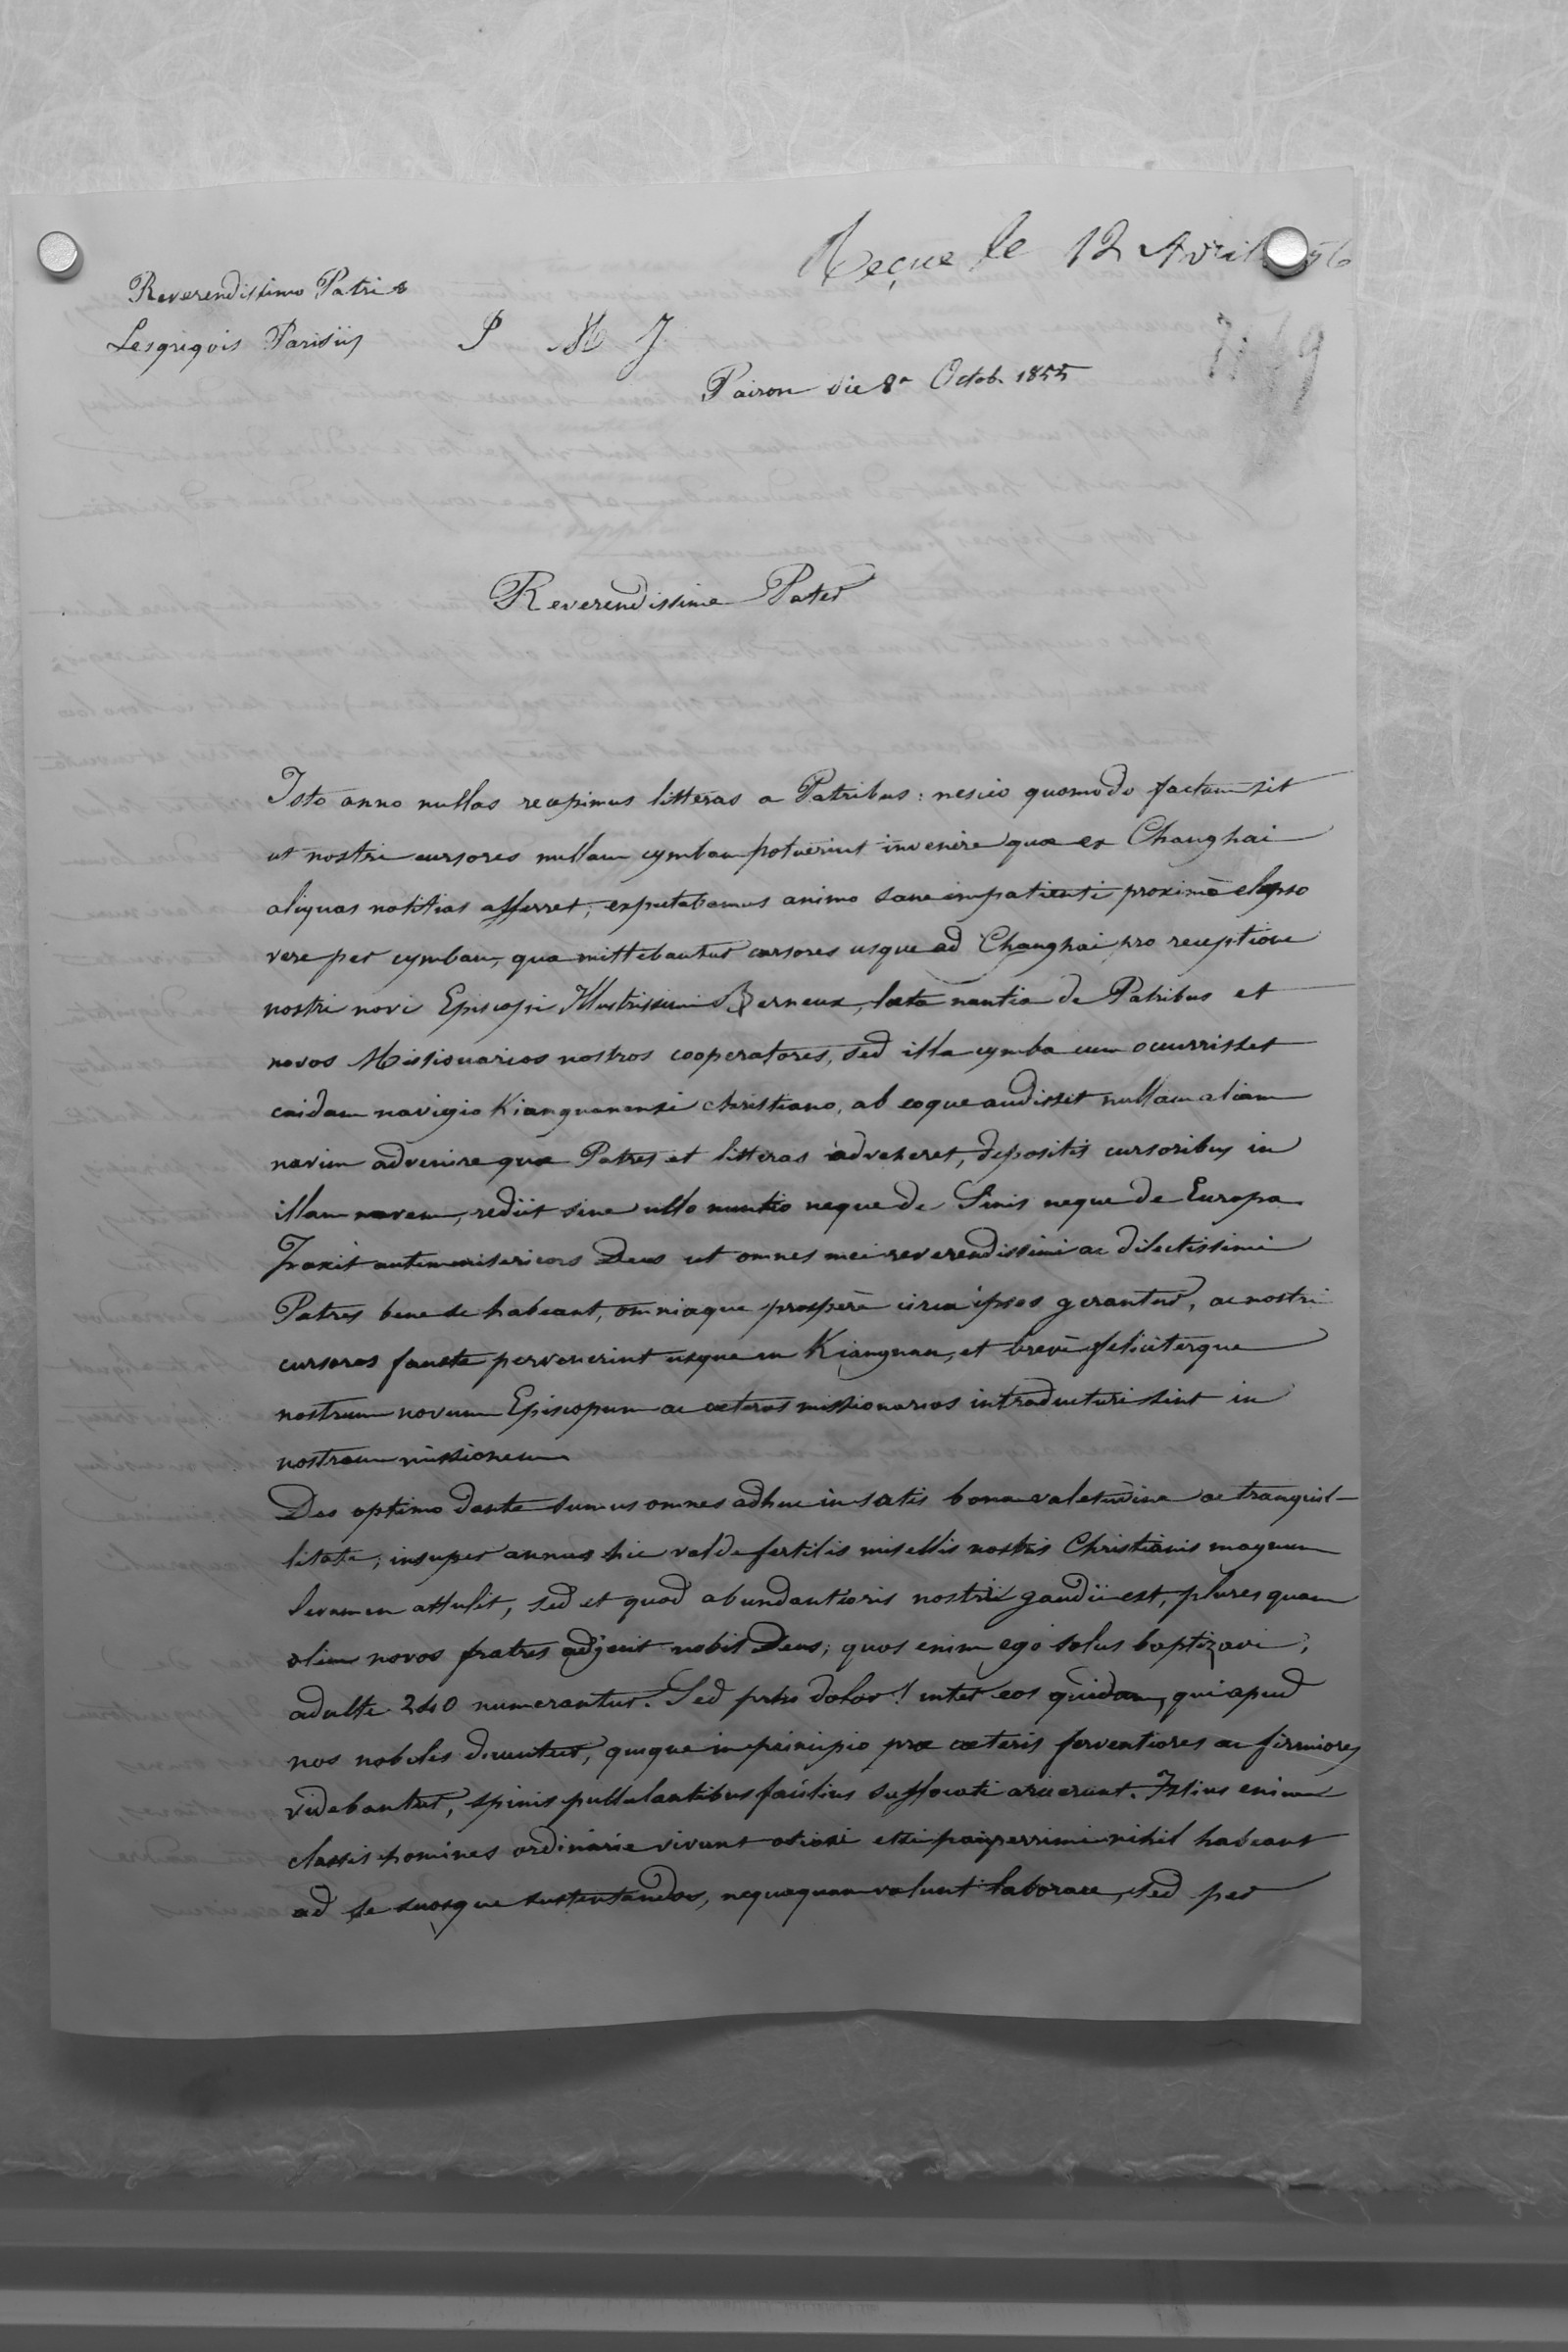 Reçue le 12 Avril 56
Reverendissimo Patri
Lesgregois Parisiis
P M J
Pairon die 8ª Octob. 1855
Reverendissime Pater
Isto anno nullas recepimus litteras a Patribus: nescio quomodo factum sit
ut nostri cursores nullam cymbam potuerint invenire quæ ex Changhai
aliquas notitias afferret; expectabamus animo sane impatienti proximè elapso
vere per cymbam, qua mittebantur cursores usque ad Changhai pro receptione
nostri novi Episcopi Illustrissimi Berneux, læta nuntia de Patribus et
novos Missionarios nostros cooperatores, sed illa cymba cum occurrisset
cuidam navigio Kiangnanensi christiano, ab eoque audisset nullam aliam
navim advenire quæ Patres et litteras adveheret, depositis cursoribus in
illam navem, rediit sine ullo nuntio neque de Sinis neque de Europa.
Faxit autem misericors Deus ut omnes mei reverendissimi ac dilectissimi
Patres bene se habeant, omniaque prosperè circa ipsos gerantur, ac nostri
cursores fauste pervenerint usque in Kiangnan, et brevè feliciterque
nostrum novum Episcopum ac cæteros missionarios introducturi sint in
nostram missionem
Deo optimo dante sumus omnes adhuc in satis bona valetudine ac tranquil-
litate; insuper annus hic valde fertilis misellis nostris Christianis magnum
levamen attulit, sed et quod abundantioris nostri gaudii est, plures quam
olim novos fratres adjecit nobis Deus; quos enim ego solus baptizavi,
adulti 240 numerantur. Sed proh dolor! inter eos quidam, qui apud
nos nobiles dicuntur, quique in principio præ cæteris ferventiores ac firmiores
videbantur, spinis pullulantibus facilius suffocati aruerunt. Istius enim
classis homines ordinarie vivunt otiosi etsi pauperrimi nihil habeant
ad se suosque sustentandos, nequaquam volunt laborare, sed per